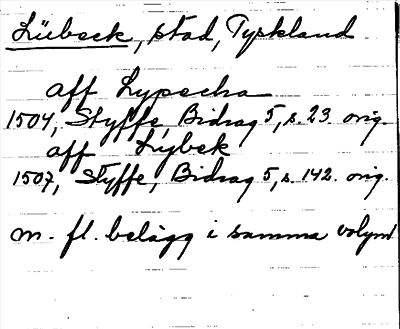 Lübeck, stad, Tyskland
aff Lypscha
1504, Styffe, Bidrag 5, s. 23. orig.
aff Lybek
1507, Styffe, Bidrag 5, s. 142. orig.
m. fl. belägg i samma volym